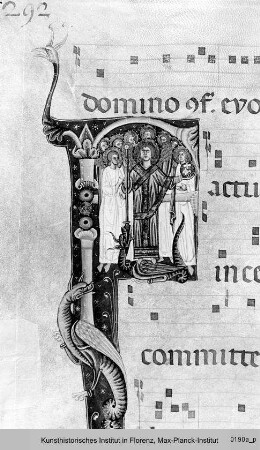 292
domino ɔf. evo
actu
in ce
committe
Kunsthistorisches Institut in Florenz, Max-Planck-Institut 0190a_p